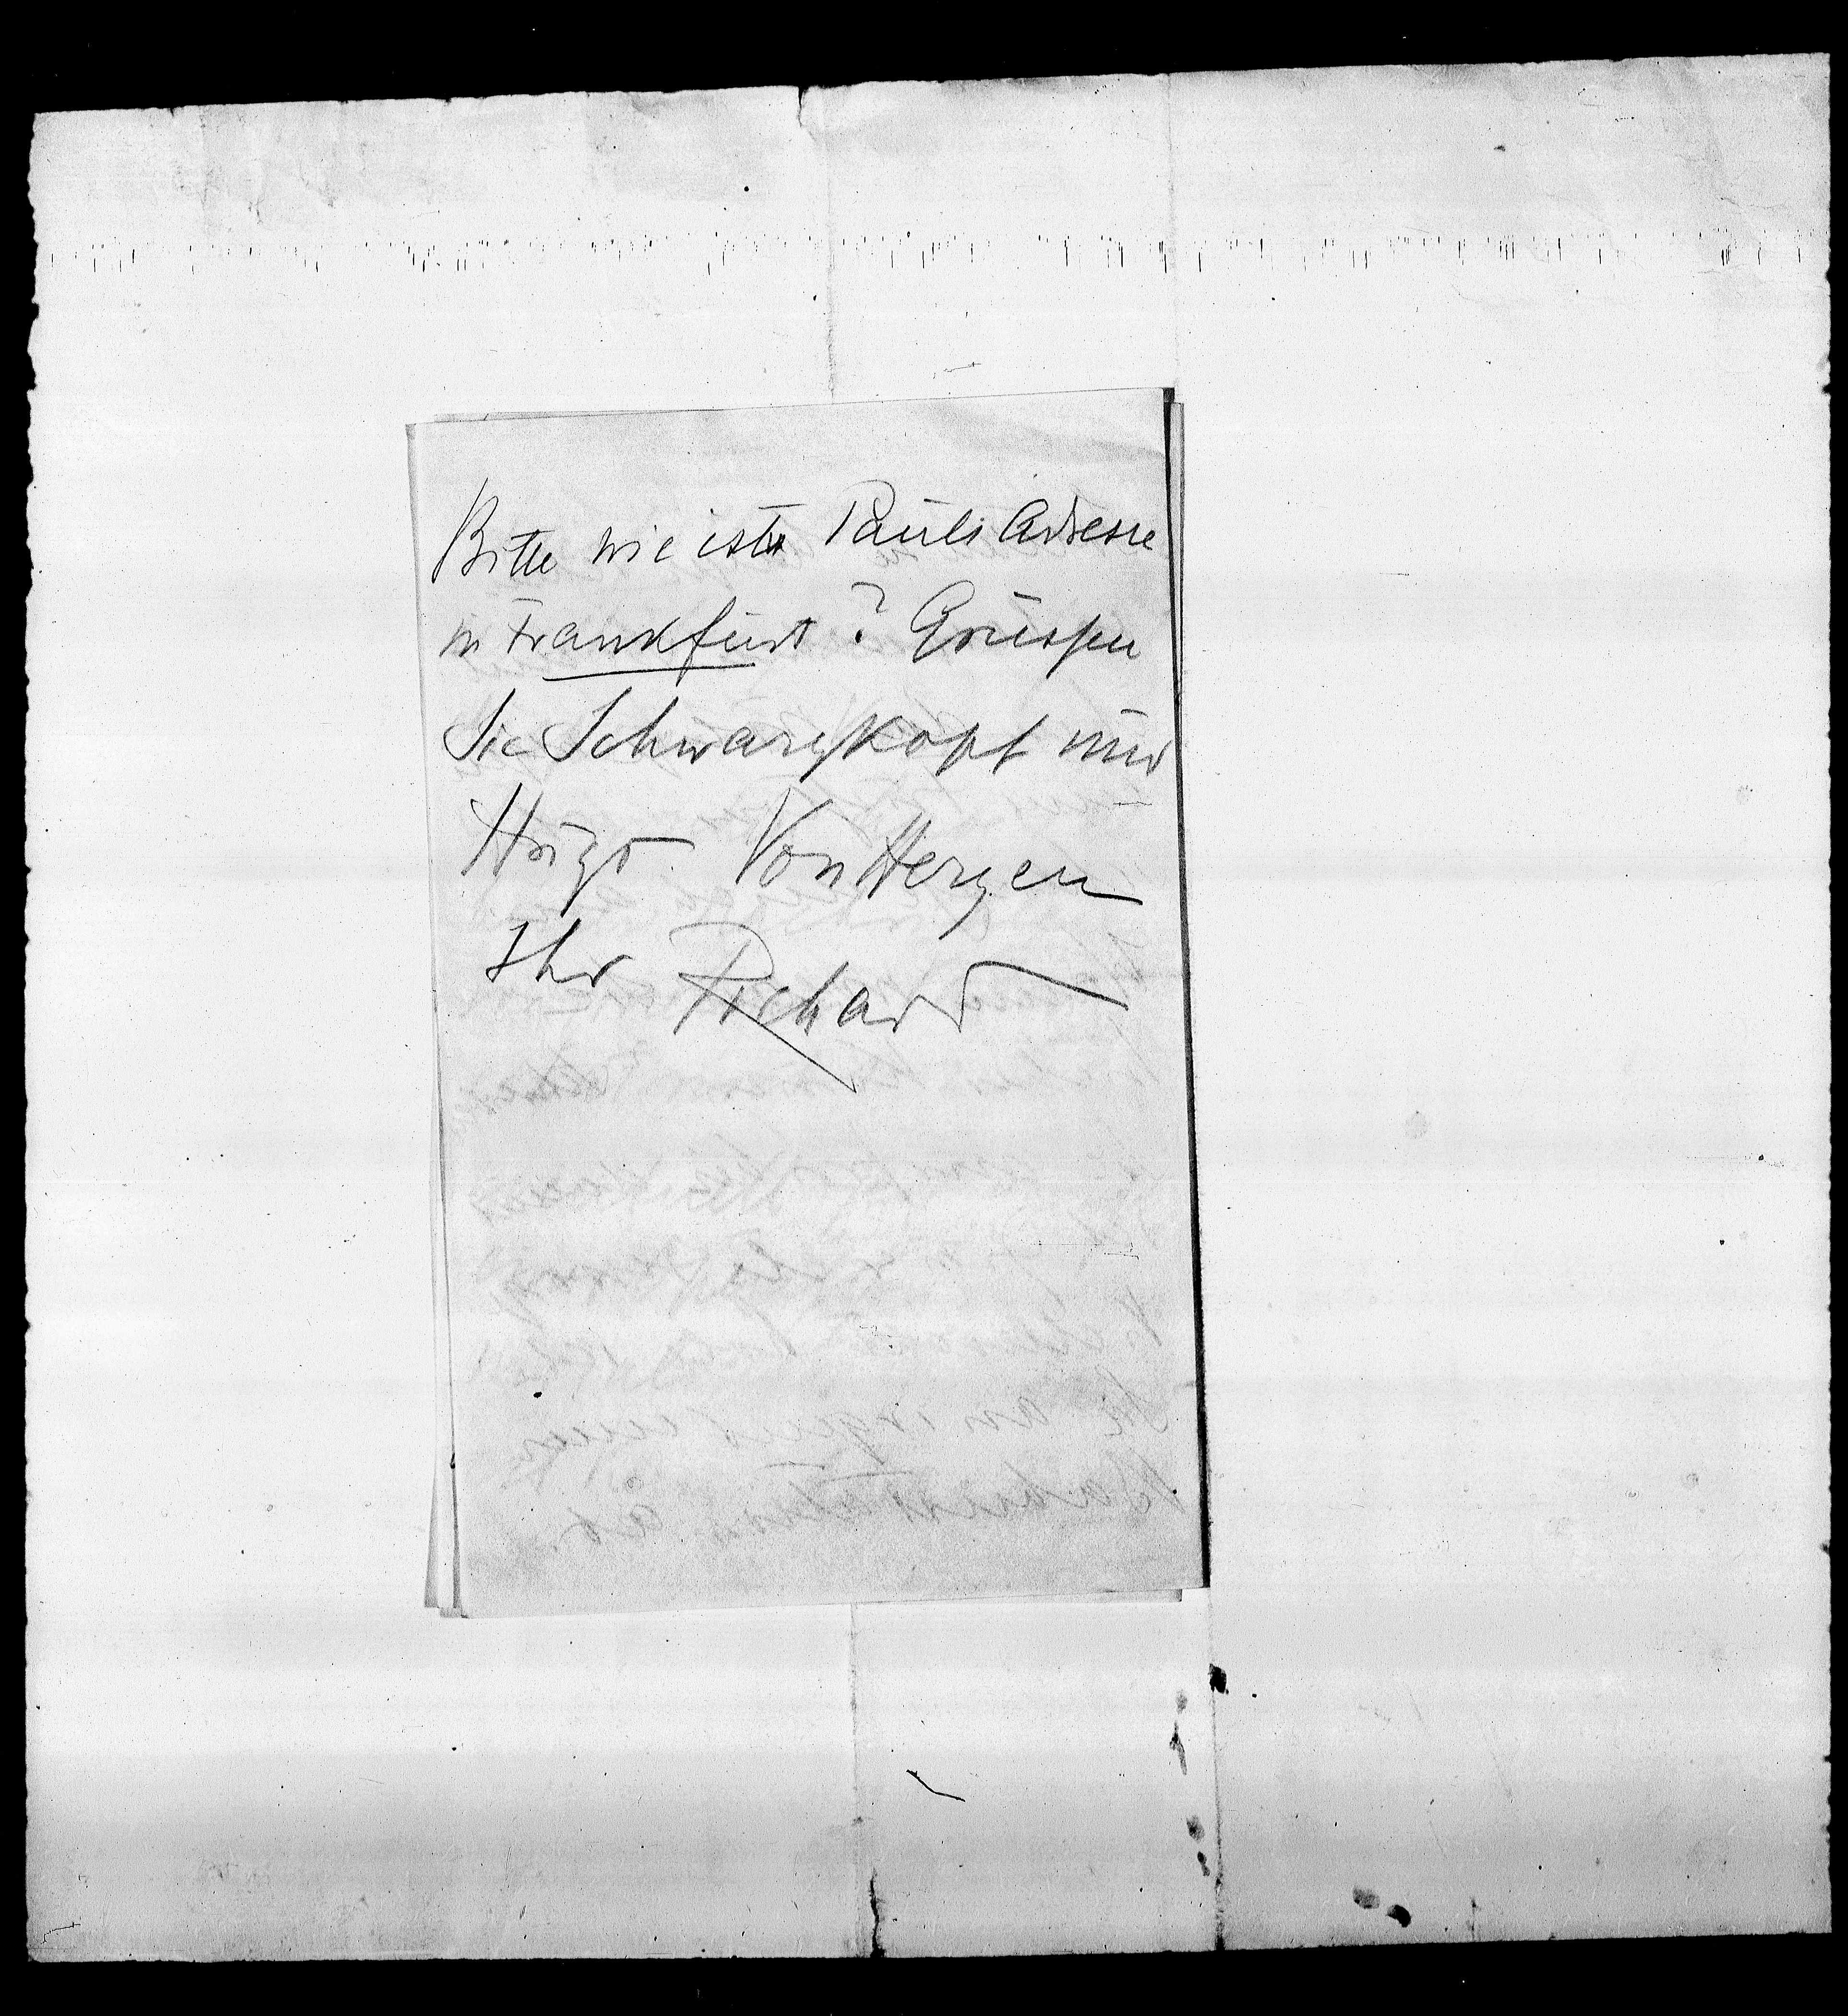 Bitte wie ist Pauls Adresse
in Frankfurt? Grüssen
Sie Schwarzkopf und
Hugo. Von Herzen
Ihr Richard